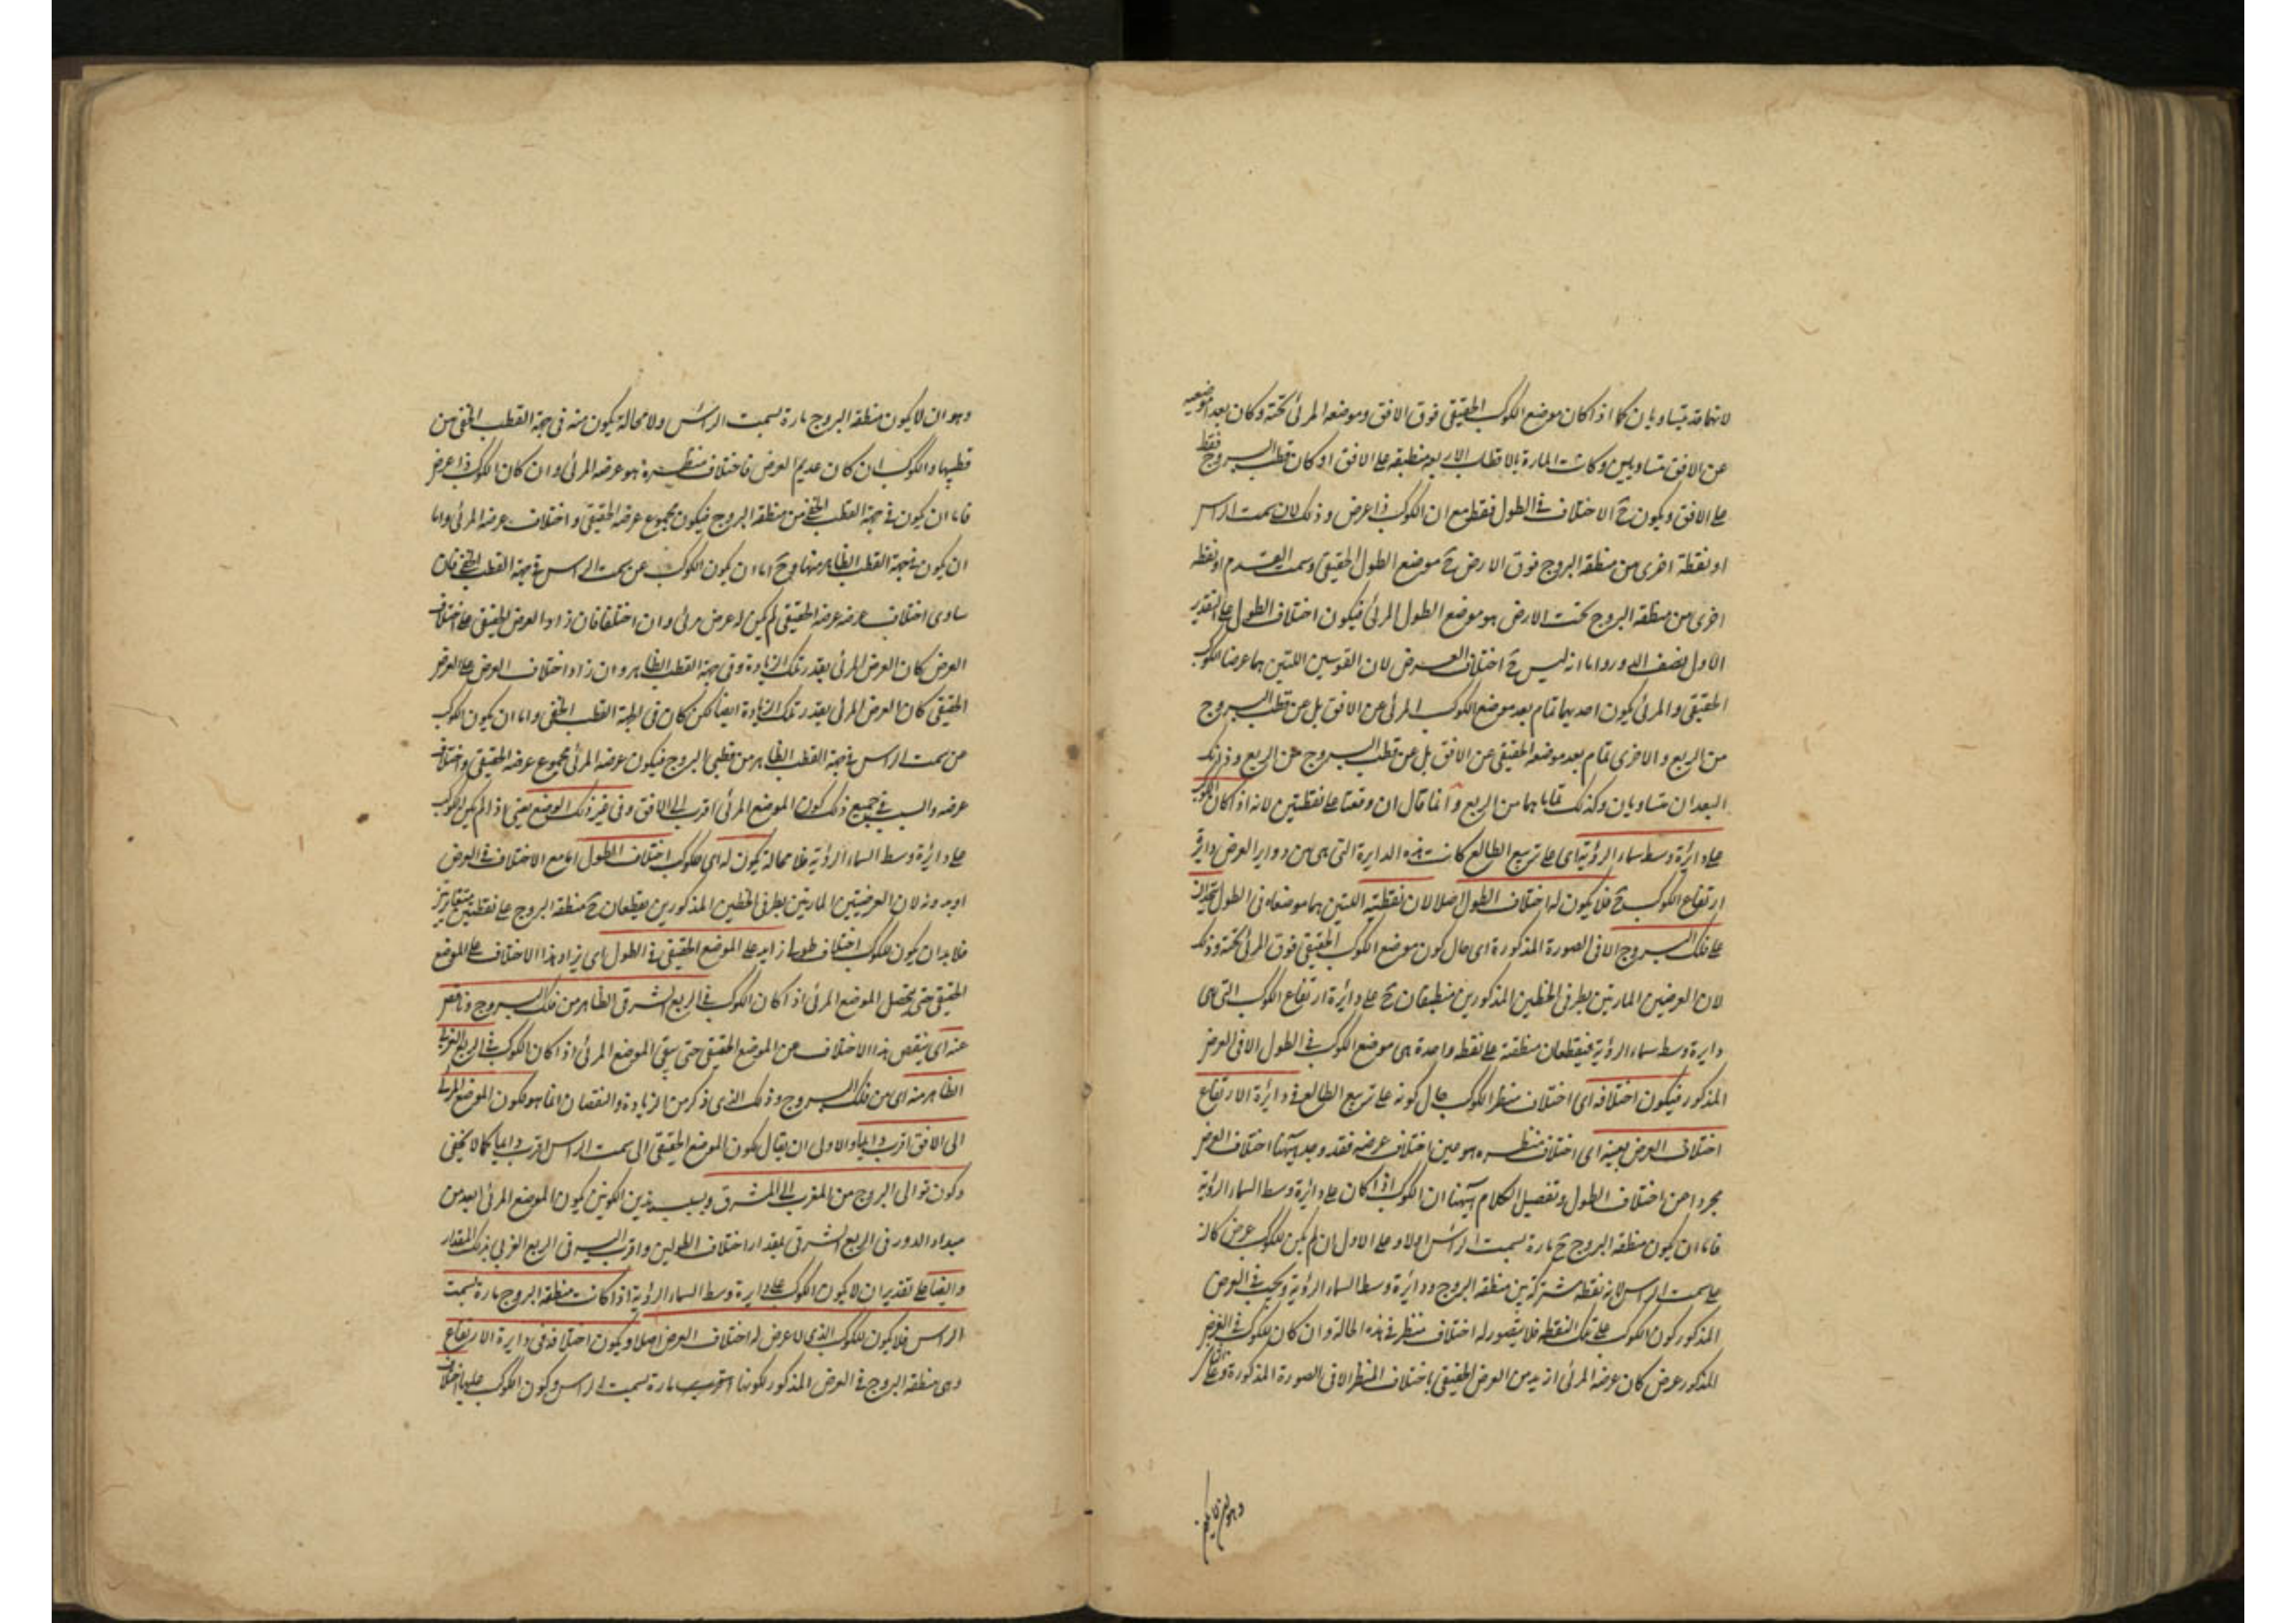 لانهما قد يتساويان كما اذا كان موضع الكوكب الحقيقى فوق الافق وموضعه المرئى تحته وكان بعد موضعيه
عن الافق متساويين وكانت المارة بالاقطاب الاربعة منطبقة على الافق او كان قطب البروج فقط
على الافق ويكون ح الاختلاف فى الطول فقط مع ان الكوكب ذا عرض وذلك لان سمت الراس
او نقطة اخرى من منطقة البروج فوق الارض ح موضع الطول الحقيقى وسمت القدم او نقطة
اخرى من منطقة البروج تحت الارض هو موضع الطول المرئى فيكون اختلاف الطول على التقدير
الاول نصف الدور واما انه ليس ح اختلاف العرض لان القوسين اللتين هما عرضا الكوكب
الحقيقى والمرئى يكون احديهما تمام بعد موضع الكوكب المرئى عن الافق بل عن قطب البروج
من الربع والاخرى تمام بعد موضعه الحقيقى عن الافق بل عن قطب البروج عن الربع وذانك
البعدان متساويان وكذلك تماماهما من الربع وانما قال ان وقعتا على نقطتين لانه اذا كان الكوكب
على دائرة وسط سماء الرؤية اى على تربيع الطالع كانت هذه الدايرة التى هى من دواير العرض دايرة
ارتفاع الكوكب ح فلا يكون له اختلاف الطول اصلا لان نقطتيه اللتين هما موضعاه فى الطول
على فلك البروج الا فى الصورة المذكورة اى حال كون موضع الكوكب الحقيقى فوق المرئى تحته وذلك
لان العرضين المارتين بطرفى الخطين المذكورين منطبقان ح على دائرة ارتفاع الكوكب التى هى
دايرة وسط سماء الرؤية فيقطعان منطقته على نقطة واحدة هى موضع الكوكب فى الطول الا فى العرض
المذكور فيكون اختلافه اى اختلاف منظر الكوكب حال كونه على تربيع الطالع فى دايرة الارتفاع
اختلاف العرض بعينه اى اختلاف منظره هو عين اختلاف عرضه فقد وجد ههنا اختلاف العرض
مجردا عن اختلاف الطول وتفصيل الكلام ههنا ان الكوكب اذا كان على دائرة وسط السماء الرؤية
فاما ان يكون منطقة البروج ح مارة بسمت الراس اولا وعلى الاول ان لم يكن للكوكب عرض كان
على سمت الراس لانه نقطة مشتركة بين منطقة البروج ودائرة وسط السماء الرؤية ويجب فى العرض
المذكور كون الكوكب على تلك النقطة فلا يتصور له اختلاف منظر فى هذه الحالة وان كان للكوكب فى الفرض
المذكور عرض كان عرضه المرئى ازيد من العرض الحقيقى باختلاف المنظر الا فى الصورة المذكورة وعلى الثانى
وهو ان لا يكون
وهو ان لا يكون منطقة البروج مارة بسمت الراس ولا محالة يكون منه فى جهة القطب الخفى من
قطبيها والكوكب ان كان عديم العرض فاختلاف منظره هو عرضه المرئى وان كان الكوكب ذا عرض
فاما ان يكون فى جهة القطب الخفى من منطقة البروج فيكون مجموع عرضه الحقيقى واختلاف عرضه المرئى واما
ان يكون فى جهة القطب الظاهر منها وح اما ان يكون الكوكب عن سمت الراس فى جهة القطب الخفى فان
ساوى اختلاف عرضه عرضه الحقيقى لم يكن له عرض مرئى وان اختلفا فان زاد العرض الحقيقى على اختلاف
العرض كان العرض المرئى بقدر تلك الزيادة وفى جهة القطب الظاهر وان زاد اختلاف العرض على العرض
الحقيقى كان العرض المرئى بقدر تلك الزيادة ايضا لكن كان فى جهة القطب الخفى واما ان يكون الكوكب
عن سمت الراس فى جهة القطب الظاهر من قطبى البروج فيكون عرضه المرئى مجموع عرضه الحقيقى واختلاف
عرضه والسبب فى جميع ذلك كون الموضع المرئى اقرب الى الافق وفى غير ذلك الوضع يعنى اذا لم يكن الكوكب
على دايرة وسط السماء الرؤية فلا محالة يكون له اى للكوكب اختلاف الطول اما مع الاختلاف فى العرض
او بدونه لان العرضيتين المارتين بطرفى الخطين المذكورين يقطعان ح منطقة البروج على نقطتين متغايرتين
فلا بد ان يكون للكوكب اختلاف طولى زايد على الموضع الحقيقى فى الطول اى يزاد هذا الاختلاف على الموضع
الحقيقى حتى يحصل الموضع المرئى اذا كان الكوكب فى الربع الشرقى الظاهر من فلك البروج وناقص
عنه اى ينقص هذا الاختلاف عن الموضع الحقيقى حتى يبقى الموضع المرئى اذا كان الكوكب فى الربع الغربى
الظاهر منه اى من فلك البروج وذلك الذى ذكر من الزيادة والنقصان انما هو لكون الموضع المرئى
الى الافق اقرب دائما والاولى ان يقال لكون الموضع الحقيقى الى سمت الراس اقرب دائما كما لا يخفى
وكون توالى البروج من المغرب الى المشرق وبسبب هذين الكونين يكون الموضع المرئى ابعد من
مبداء الدور فى الربع الشرقى بمقدار اختلاف الطولين واقرب اليه فى الربع الغربى بذلك المقدار
وايضا على تقدير ان لا يكون الكوكب على دايرة وسط السماء الرؤية اذا كانت منطقة البروج مارة بسمت
الراس فلا يكون للكوكب الذى لا عرض له اختلاف العرض اصلا ويكون اختلافه فى دايرة الارتفاع
وهى منطقة البروج فى العرض المذكور لكونها مارة بسمت الراس وكون الكوكب عليها اختلاف